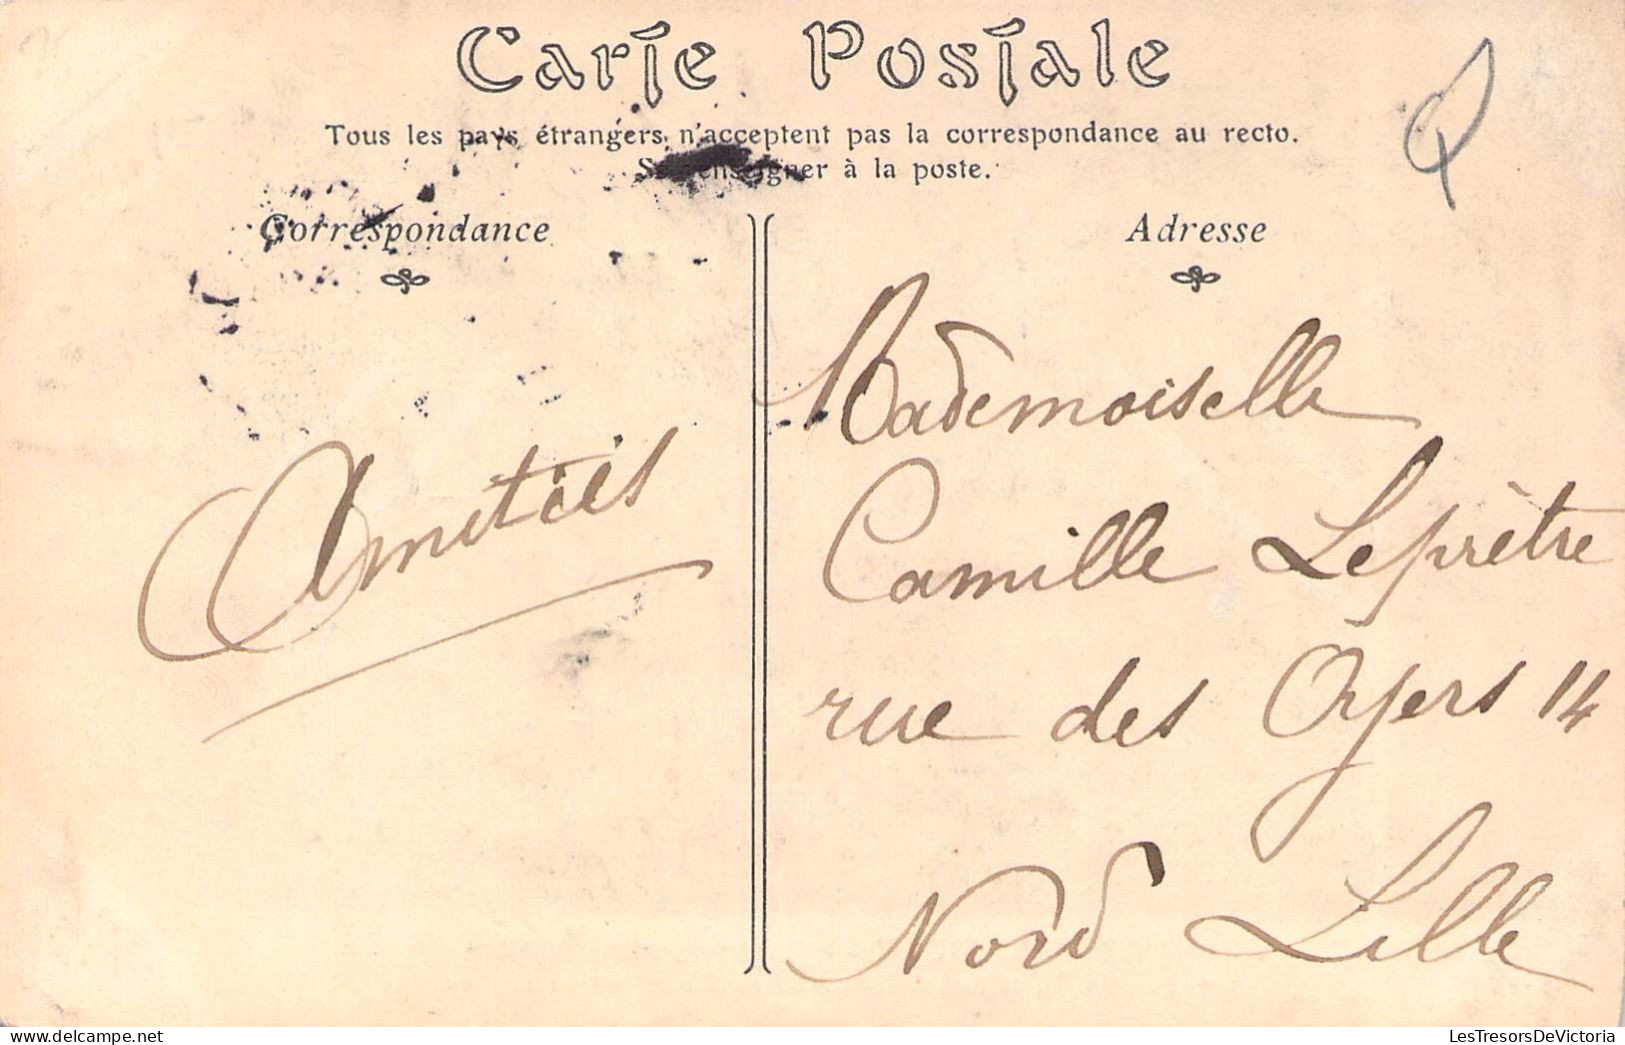 Carte Postale
Tous les pays étrangers n'acceptent pas la correspondance au recto.
Se renseigner à la poste.
Correspondance
Adresse
Amitiés
Mademoiselle
Camille Leprêtre
rue des Oyers 14
Nord Lille
LesTresorsDeVictoria